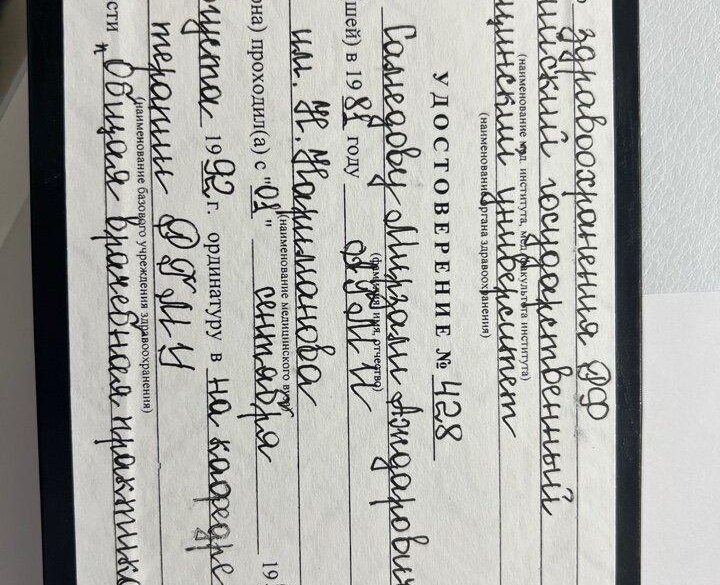 здравоохранения РФ
ийский государственный
(наименование мед. института, мед. факультета института)
цинский университет
(наименование органа здравоохранения)
УДОСТОВЕРЕНИЕ № 428
Самедову Мирзали Аждарович
(фамилия, имя, отчество)
шей) в 1981 году АГМИ
им. Н. Нариманова
(наименование медицинского вуза)
она) проходил(а) с "01" сентября 19
густа 1992 г. ординатуру в на кафедре
терапии РГМУ
(наименование базового учреждения здравоохранения)
сти " Общая врачебная практика